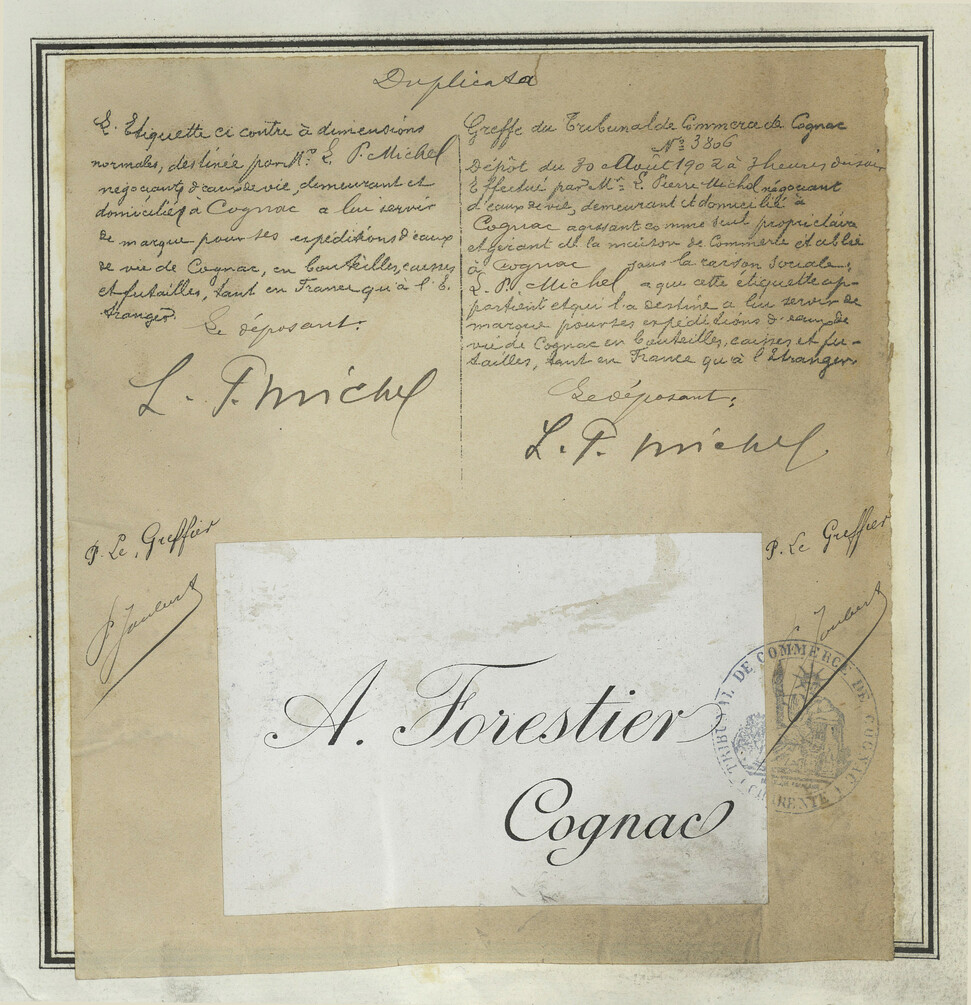 Duplicata
L'Etiquette ci contre à dimensions
normales, destinée par Mr. L. P. Michel
négociant d'eaux de vie, demeurant et
domicilié à Cognac a lui servir
de marque pour ses expéditions d'eaux
de vie de Cognac, en bouteilles, caisses
et futailles, tant en France qu'à l'E-
tranger.
Le déposant:
L. P. Michel
Greffe du Tribunal de Commerce de Cognac
No 3806
Dépôt du 30 Août 1902 à 3 heures du soir
Effectué par Mr. L. Pierre Michel négociant
d'eaux de vie, demeurant et domicilié à
Cognac agissant comme seul propriétaire
et gérant de la maison de Commerce établie
à Cognac sous la raison sociale:
L. P. Michel a que cette étiquette ap-
partient et qu'il l'a destine a lui servir de
marque pour ses expéditions d'eaux de
vie de Cognac en bouteilles, caisses et fu-
tailles, tant en France qu'à l'Etranger.
Le déposant:
L. P. Michel
P. Le Greffier
P. Le Greffier
Joubert
Joubert
A. Forestier
Cognac
TRIBUNAL DE COMMERCE DE COGNAC
(CHARENTE)